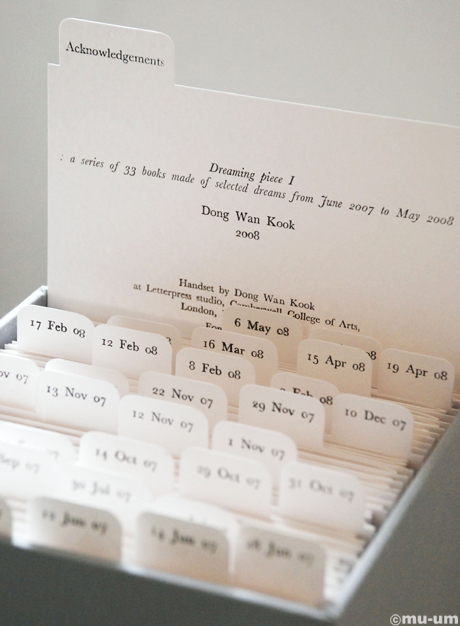 Acknowledgements
Dreaming piece I
: a series of 33 books made of selected dreams from June 2007 to May 2008
Dong Wan Kook
2008
Handset by Dong Wan Kook
at Letterpress studio, Camberwell College of Arts,
London,
6 May 08
17 Feb 08
12 Feb 08
16 Mar 08
15 Apr 08
19 Apr 08
8 Feb 08
Feb 08
13 Nov 07
22 Nov 07
29 Nov 07
10 Dec 07
12 Nov 07
1 Nov 07
14 Oct 07
29 Oct 07
31 Oct 07
Sep 07
30 Jul 07
Jun 07
14 Jun 07
Jun 07
©mu-um